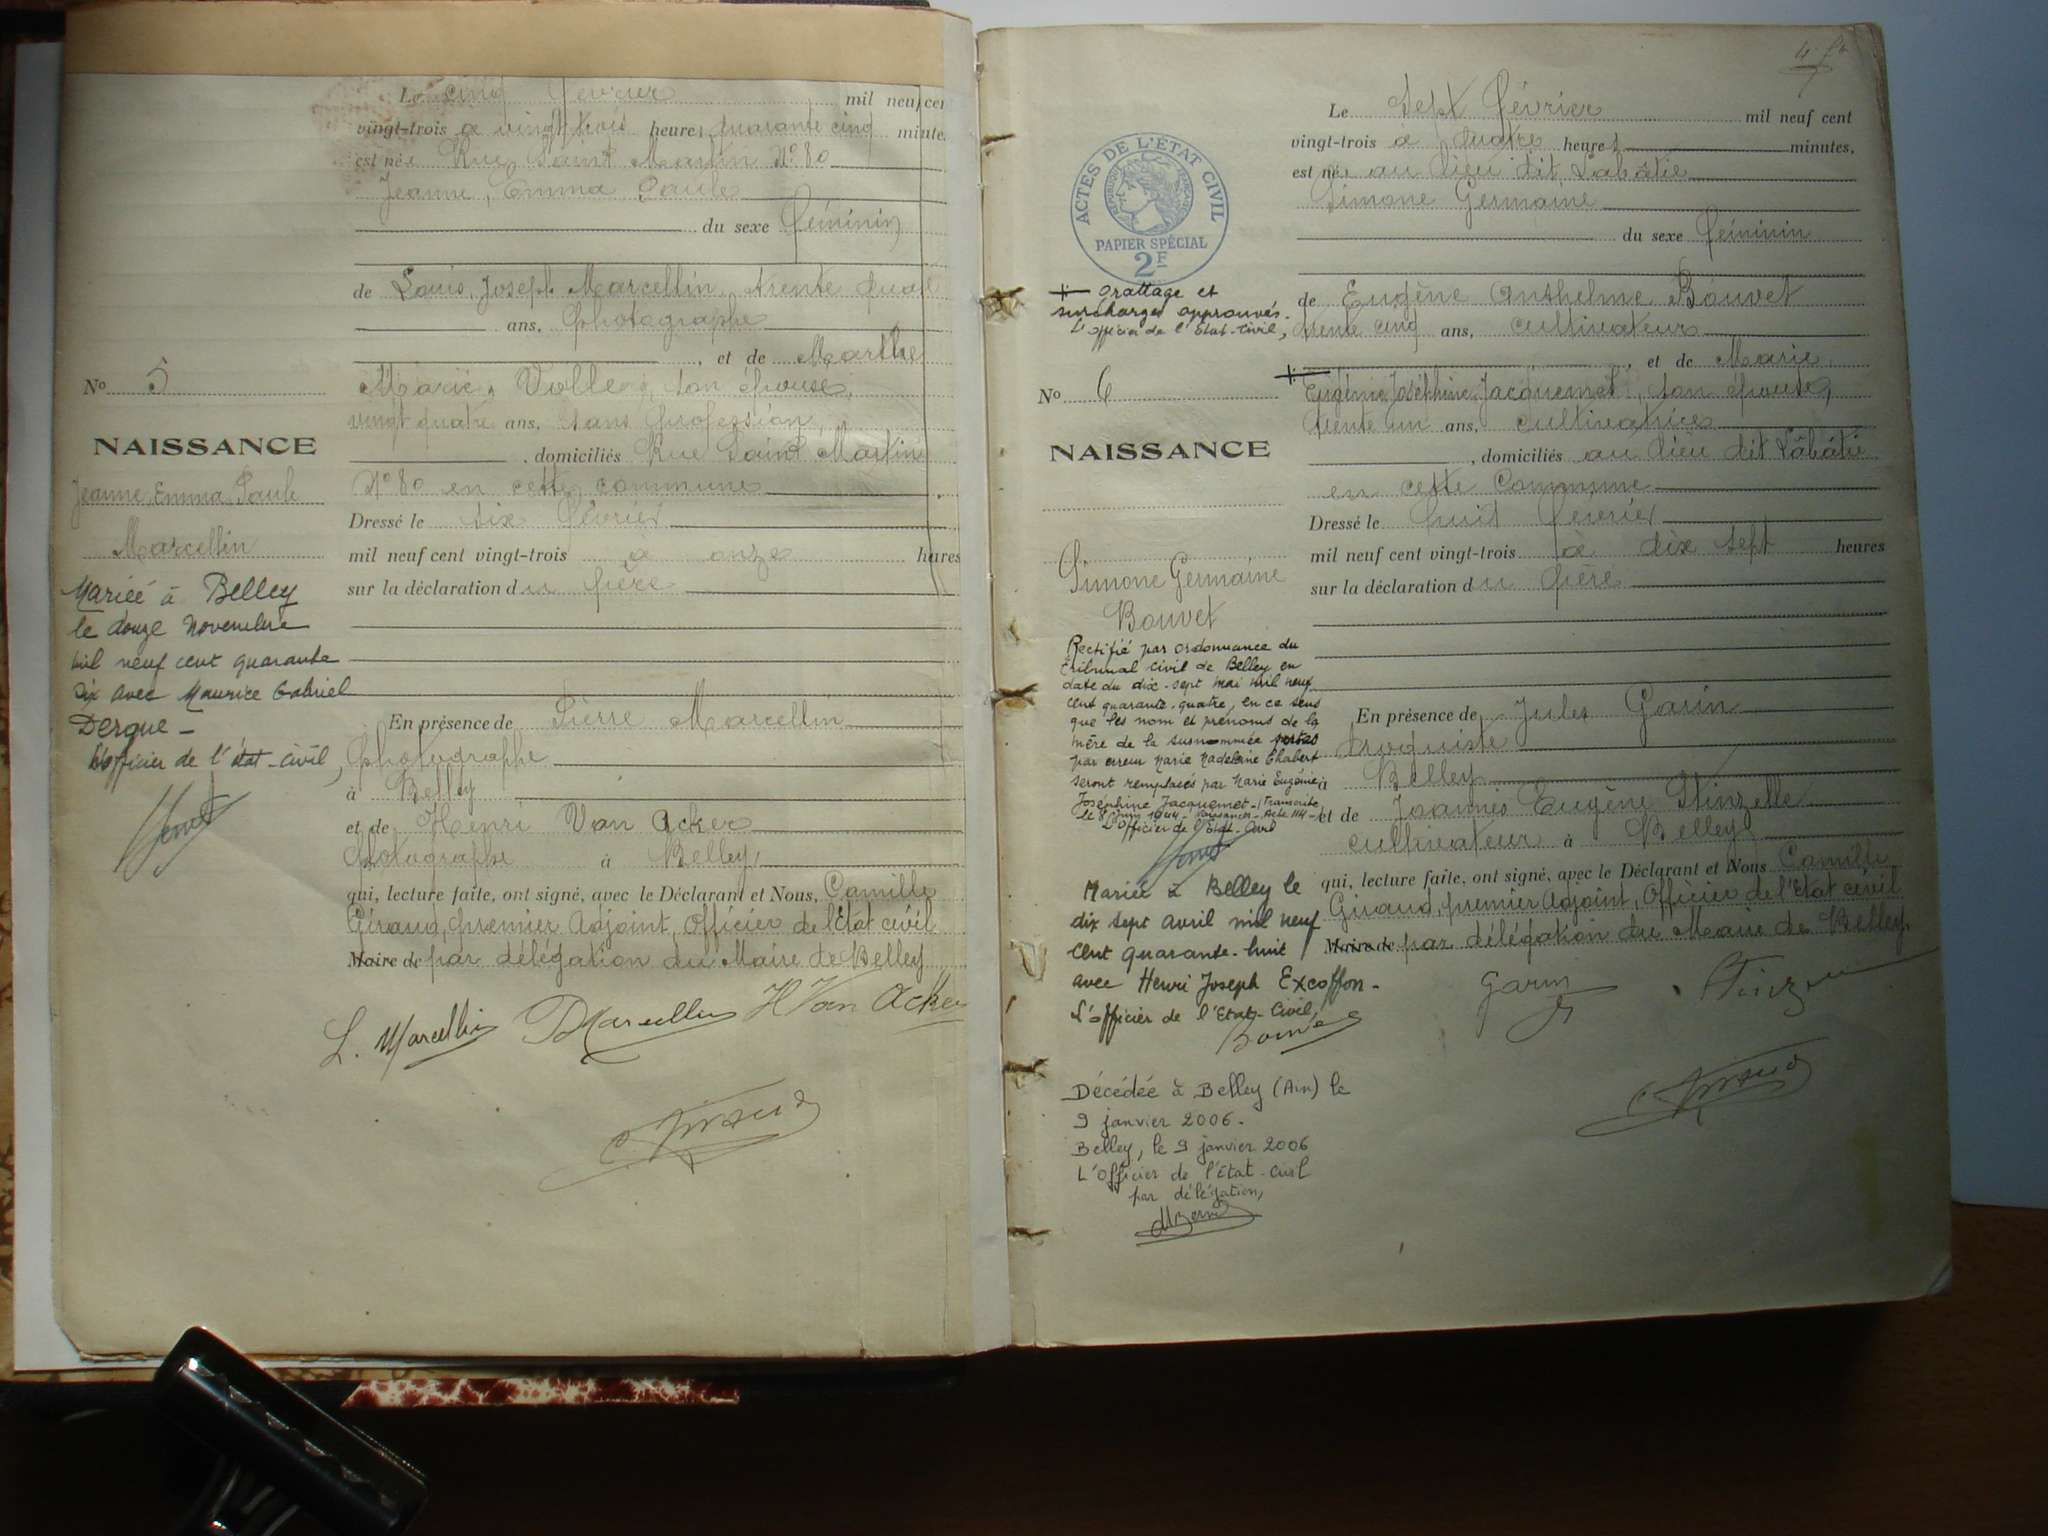 Le cinq février mil neuf cent
vingt-trois à vingt trois heures quarante cinq minutes
est née Rue Saint Martin N° 80
Jeanne, Emma Paule
du sexe féminin
de Louis, Joseph Marcellin, trente quatre
ans, photographe
, et de Marthe
Marie, son épouse,
vingt quatre ans, sans profession,
, domiciliés Rue Saint Martin
N° 80 en cette commune
Dressé le six février
mil neuf cent vingt-trois à onze heures
sur la déclaration du père
En présence de Pierre Marcellin
photographe
à Belley
et de Henri Van Acker
photographe à Belley,
qui, lecture faite, ont signé, avec le Déclarant et Nous, Camille
Giraud, premier Adjoint, Officier de l'Etat civil
Maire de par délégation du Maire de Belley
L. Marcellin P Marcellin H Van Acker
C Giraud
No 5
NAISSANCE
Jeanne Emma Paule
Marcellin
Mariée à Belley
le douze Novembre
mil neuf cent quarante
six avec Maurice Gabriel
Dergue –
L'officier de l'état-civil,
4
ACTES DE L'ÉTAT CIVIL
RÉPUBLIQUE FRANÇAISE
PAPIER SPÉCIAL
2F
Le sept février mil neuf cent
vingt-trois à quatre heures minutes,
est née au lieu dit Labâtie
Simone Germaine
du sexe féminin
de Eugène Anthelme Bouvet
trente cinq ans, cultivateur
, et de Marie,
Eugénie Joséphine Jacquemet, son épouse,
trente un ans, cultivatrice
, domiciliés au lieu dit Labâtie
en cette Commune
Dressé le huit février
mil neuf cent vingt-trois à dix sept heures
sur la déclaration du père
En présence de Jules Garin
droguiste
à Belley
et de Joannès Eugène
cultivateur à Belley
qui, lecture faite, ont signé, avec le Déclarant et Nous Camille
Giraud, premier Adjoint, Officier de l'Etat civil
Maire de par délégation du Maire de Belley
Garin
C Giraud
+ Grattage et
surcharges approuvés.
L'officier de l'Etat-Civil,
No 6
NAISSANCE
Simone Germaine
Bouvet
Rectifié par ordonnance du
tribunal civil de Belley en
date du dix-sept mai mil neuf
cent quarante-quatre, en ce sens
que les nom et prénoms de la
mère de la susnommée portés
par erreur Marie Madeleine Chabert
seront remplacés par Marie Eugénie
Joséphine Jacquemet – Transcrite
le 8 juin 1944 – Naissances – Acte 114 –
L'Officier de l'Etat-Civil
Mariée à Belley le
dix sept avril mil neuf
cent quarante-huit
avec Henri Joseph Excoffon –
L'officier de l'Etat-Civil,
Décédée à Belley (Ain) le
9 janvier 2006.
Belley, le 9 janvier 2006
L'Officier de l'Etat-Civil
par délégation,